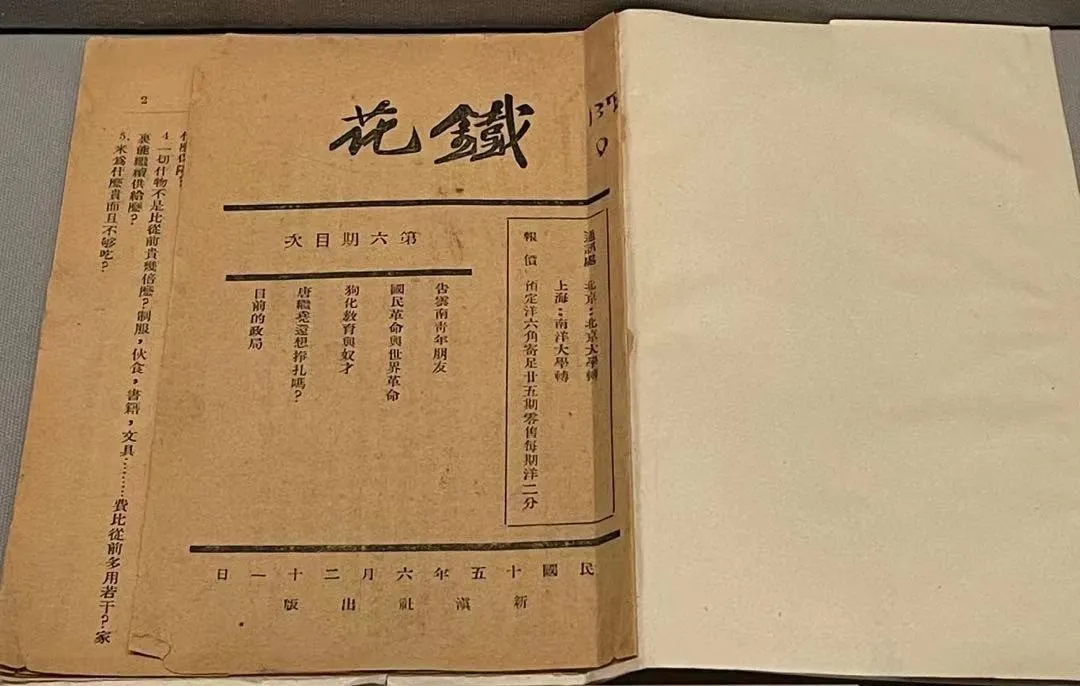 鐵花
137
0
通訊處 北京:北京大學轉
上海:南洋大學轉
報價 預定洋六角寄足廿五期零售每期洋二分
第六期目次
告雲南靑年朋友
國民革命與世界革命
狗化敎育與奴才
唐繼堯還想掙扎嗎?
目前的政局
民國十五年六月二十一日
新滇社出版
2
4.一切什物不是比從前貴幾倍麽?制服,伙食,書籍,文具………費比從前多用若干?家
裏能繼續供給麽?
5.米爲什麽貴而且不够吃?